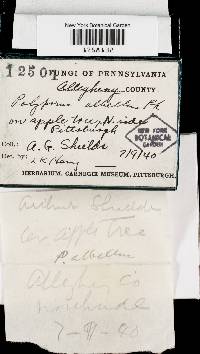 New York Botanical Garden
1250
FUNGI OF PENNSYLVANIA
Allegheny COUNTY
Polyporus albellus Pk
on apple tree, N. side
Pittsburgh
NEW YORK
BOTANICAL
GARDEN
Coll.: A. G. Shields 7/9/40
Det. by: LK Henry
HERBARIUM, CARNEGIE MUSEUM, PITTSBURGH.
Arthur Shields
on apple tree
P. albellus
Allegheny Co
northside
7-9-40